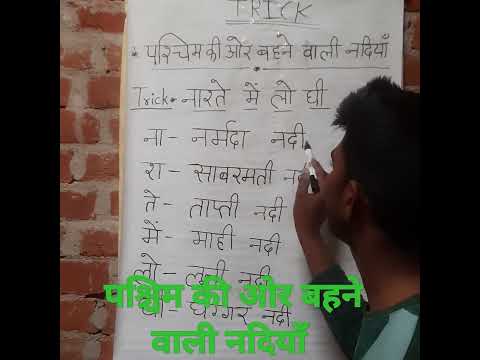 TRICK
• पश्चिम की ओर बहने वाली नदियाँ
Trick • नारते में लो घी
ना - नर्मदा नदी
रा - साबरमती
ते - ताप्ती नदी
में - माही नदी
लो - लूनी नदी
घग्गर नदी
पश्चिम की ओर बहने
वाली नदियाँ